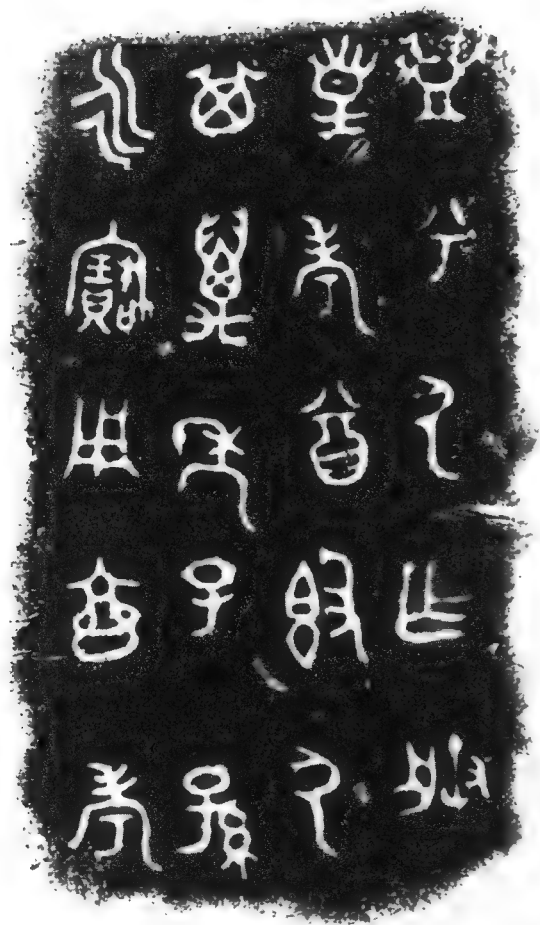 豐兮尸乍朕
皇考尊𣪘尸
其萬年子孫
永寶用亯孝